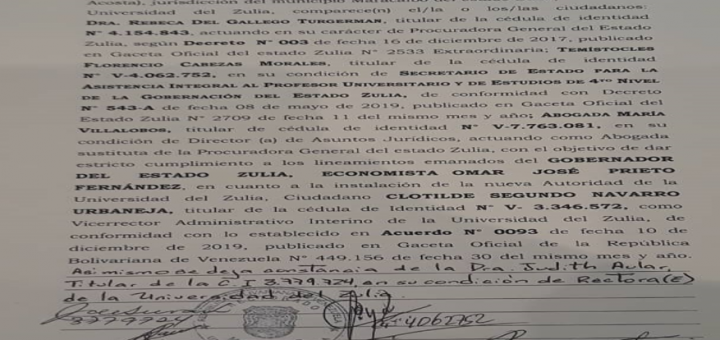 Acosta), jurisdicción del municipio Maracaibo del
Universidad del Zulia, comparece(n) el/la los/las ciudadanos:
DRA. REBECA DEL GALLEGO TURGERMAR, titular de la cédula de identidad
N° 4.154.843, actuando en su carácter de Procuradora General del Estado
Zulia, según Decreto N° 003 de fecha 16 de diciembre de 2017, publicado
en Gaceta Oficial del estado Zulia N° 2533 Extraordinaria; TEMÍSTOCLES
FLORENCIO CABEZAS MORALES, titular de la cédula de identidad
N° V-4.062.752, en su condición de SECRETARIO DE ESTADO PARA LA
ASISTENCIA INTEGRAL AL PROFESOR UNIVERSITARIO Y DE ESTUDIOS DE 4TO NIVEL
DE LA GOBERNACIÓN DEL ESTADO ZULIA, de conformidad con Decreto
N° 543-A de fecha 08 de mayo de 2019, publicado en Gaceta Oficial del
Estado Zulia N° 2709 de fecha 11 del mismo mes y año; ABOGADA MARÍA
VILLALOBOS, titular de cédula de identidad N° V-7.763.081, en su
condición de Director (a) de Asuntos Jurídicos, actuando como Abogada
sustituta de la Procuradora General del estado Zulia, con el objetivo de dar
estricto cumplimiento a los lineamientos emanados del GOBERNADOR
DEL ESTADO ZULIA, ECONOMISTA OMAR JOSÉ PRIETO
FERNÁNDEZ, en cuanto a la instalación de la nueva Autoridad de la
Universidad del Zulia, Ciudadano CLOTILDE SEGUNDO NAVARRO
URBANEJA, titular de la cédula de Identidad N° V- 3.346.572, como
Vicerrector Administrativo Interino de la Universidad del Zulia, de
conformidad con lo establecido en Acuerdo N° 0093 de fecha 10 de
diciembre de 2019, publicado en Gaceta Oficial de la República
Bolivariana de Venezuela N° 449.156 de fecha 30 del mismo mes y año.
Asi mismo se deja constancia de la Dra. Judith Aular,
Titular de la C I 3.779.724, en su condición de Rectora(E)
de la Universidad del Zulia.
3779724
4062752